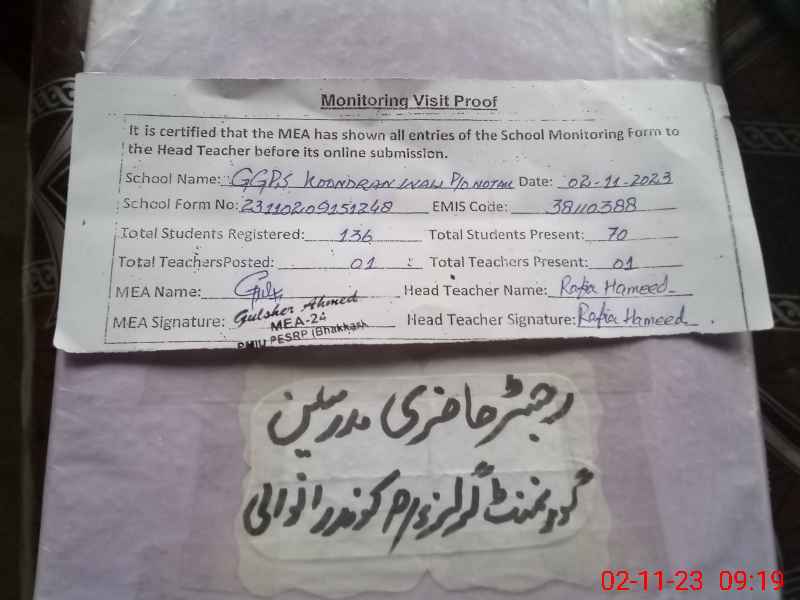 Monitoring Visit Proof
It is certified that the MEA has shown all entries of the School Monitoring Form to
the Head Teacher before its online submission.
School Name: GGPS KOONDRAN WALI P/O NOTAK Date: 02-11-2023
School Form No: 23110209151248 EMIS Code: 38110388
Total Students Registered: 136 Total Students Present: 70
Total TeachersPosted: 01 Total Teachers Present: 01
MEA Name: Head Teacher Name: Rafia Hameed
MEA Signature: Gulsher Ahmed Head Teacher Signature: Rafia Hameed
MEA-24
PMIU PESRP (Bhakkar)
رجسٹر حاضری مدرسین
گورنمنٹ گرلز پرائمری کوندرانوالی
02-11-23 09:19